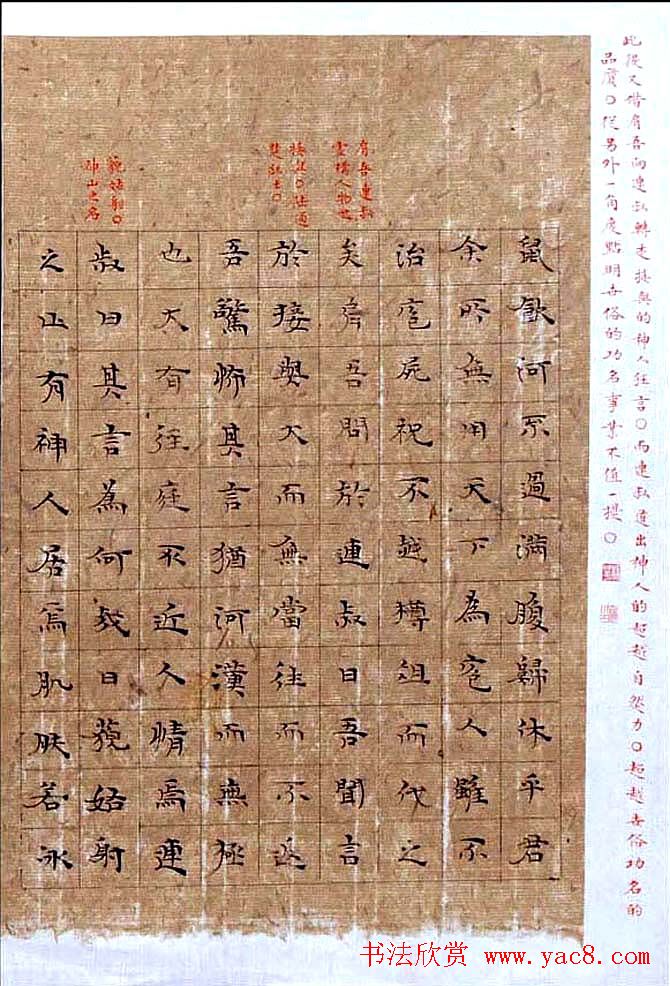 此段又借肩吾向連叔轉述接輿的神人狂言〇而連叔道出神人的超越自然力〇超越世俗功名的
品質〇從另外一角度點明世俗的功名事業不值一提〇
肩吾連叔
虛構人物也
接輿〇陸通
楚狂士〇
藐姑射〇
神山之名
鼠飲河不過滿腹歸休乎君
余所無用天下為庖人雖不
治庖屍祝不越樽俎而代之
矣肩吾問於連叔曰吾聞言
於接輿大而無當往而不返
吾驚怖其言猶河漢而無極
也大有徑庭不近人情焉連
叔曰其言為何哉曰藐姑射
之山有神人居焉肌肤若冰
书法欣赏 www.yac8.com